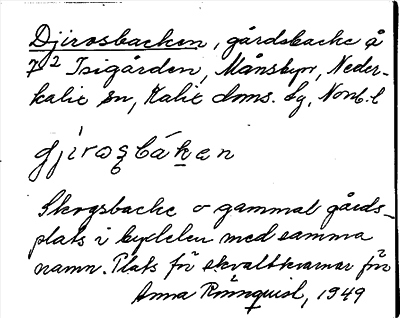 Djirosbacken, gårdsbacke å
7² Tsigården, Månsbyn, Neder-
kalix sn, Kalix doms. lg, Norrb. l
Skogsbacke o gammal gårds-
plats i bydelen med samma
namn. Plats för skvaltkvarnar förr
Anna Rönnquist, 1949